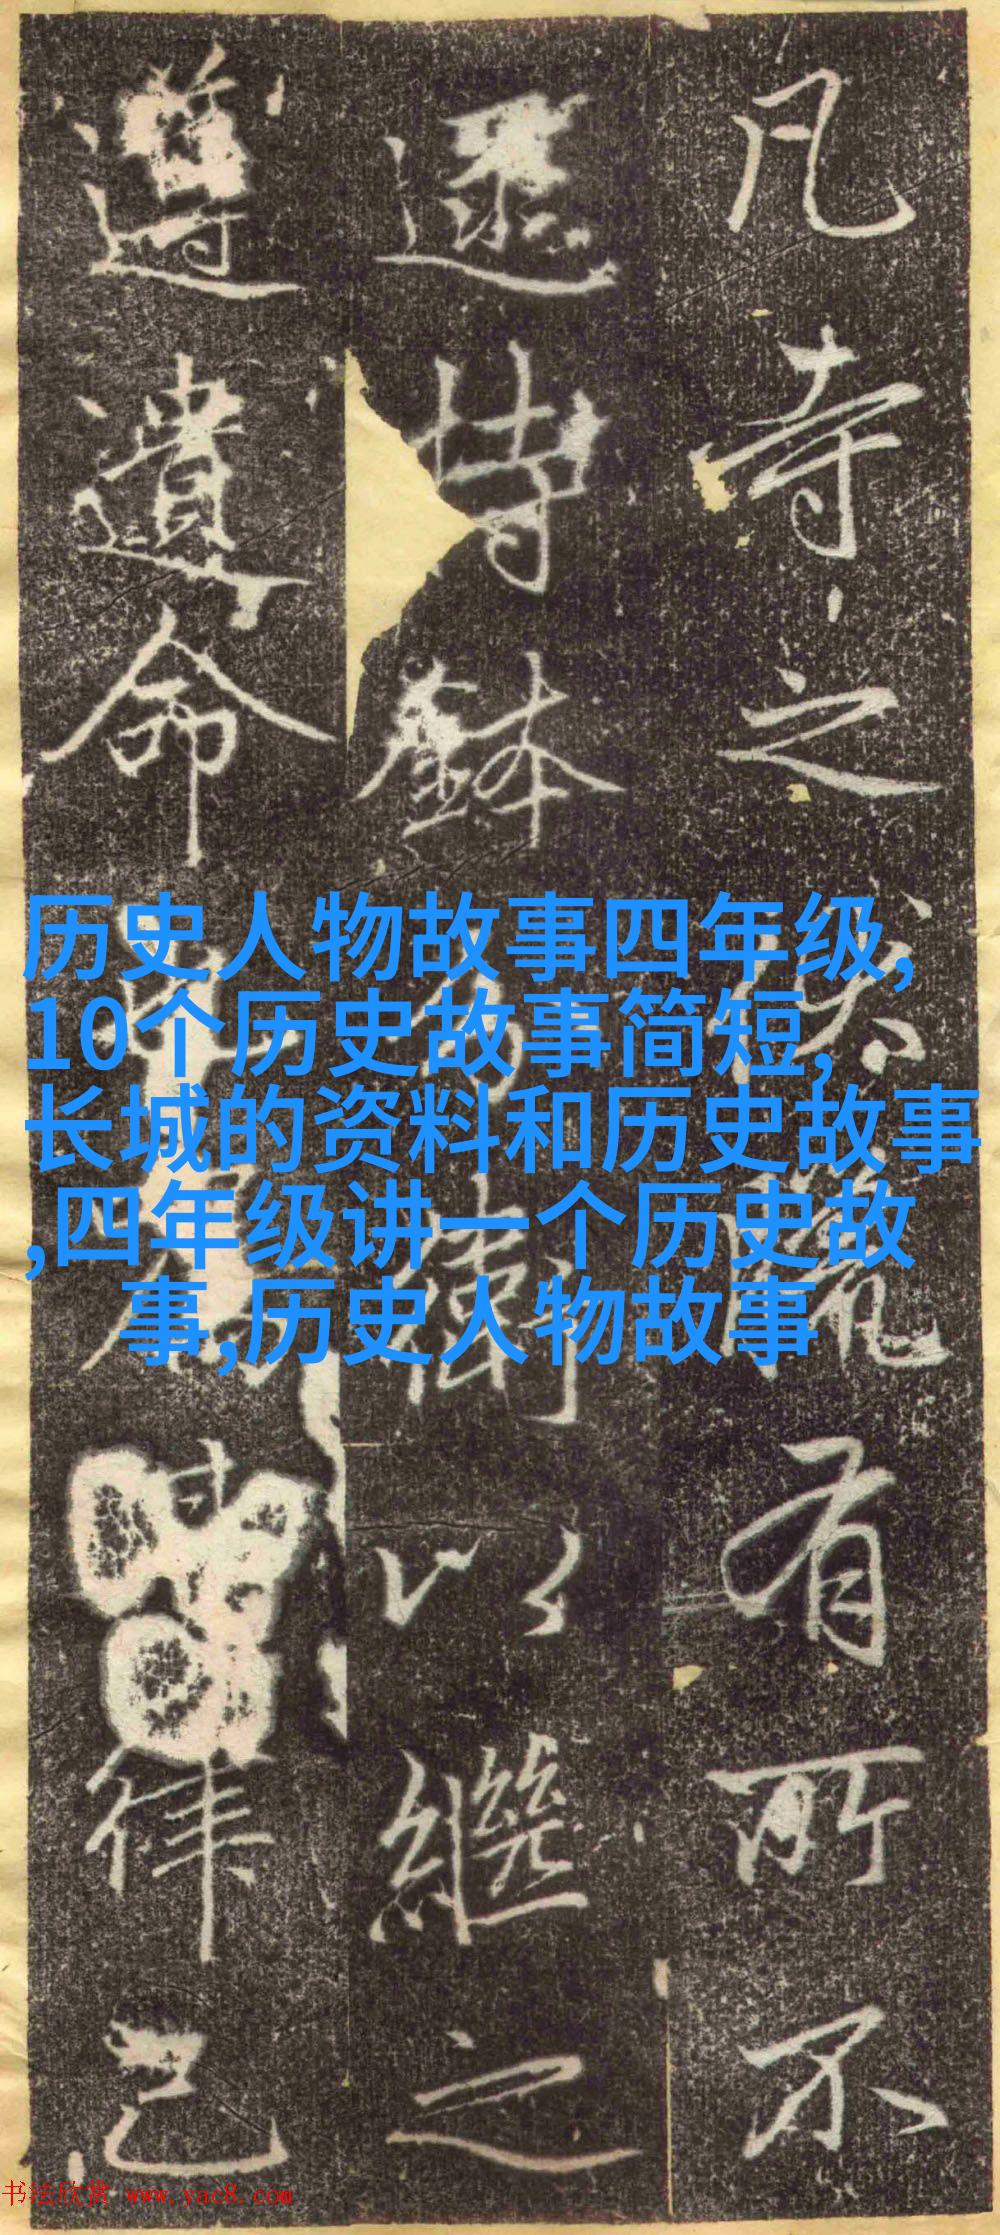 凡寺之有所不
持鉢以繼之
遵遺命律己
历史人物故事四年级,
10个历史故事简短,
长城的资料和历史故事
,四年级讲一个历史故
事,历史人物故事
书法欣赏 www.yac8.com